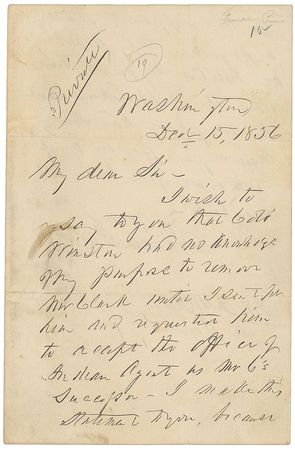 Franklin Pierce
10
19
Private
Washington
Dec 15, 1856
My dear Sir -
I wish to
say to you that Colo
Winston had no knowledge
of my purpose to remove
Mr Clark until I sent for
him and requested him
to accept the office of
Indian Agent as Mr C's
Successor - I make this
statement to you, because